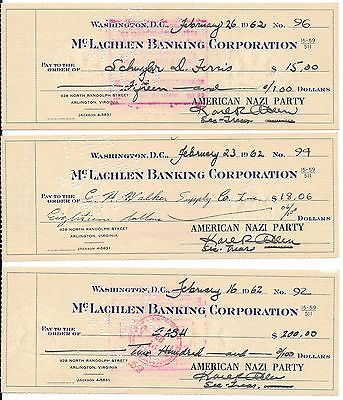 WASHINGTON, D.C., February 26 1962 No. 96
MCLACHLEN BANKING CORPORATION 15-59 511
PAY TO THE ORDER OF Schuyler D. Ferris $ 15.00
Fifteen and 0/100 DOLLARS
928 NORTH RANDOLPH STREET
ARLINGTON, VIRGINIA
AMERICAN NAZI PARTY
JACKSON 4-5831
Karl R. Allen
Sec-Treas
WASHINGTON, D.C., February 23 1962 No. 94
MCLACHLEN BANKING CORPORATION 15-59 511
PAY TO THE ORDER OF C. H. Walker Supply Co. Inc. $ 18.06
Eighteen dollars 06/100 DOLLARS
928 NORTH RANDOLPH STREET
ARLINGTON, VIRGINIA
AMERICAN NAZI PARTY
JACKSON 4-5831
Karl R. Allen
Sec. Treas
WASHINGTON, D.C., February 16 1962 No. 92
MCLACHLEN BANKING CORPORATION 15-59 511
PAY TO THE ORDER OF CASH $ 200.00
Two Hundred and 0/100 DOLLARS
928 NORTH RANDOLPH STREET
ARLINGTON, VIRGINIA
AMERICAN NAZI PARTY
JACKSON 4-5831
Karl R. Allen
Sec-Treas.